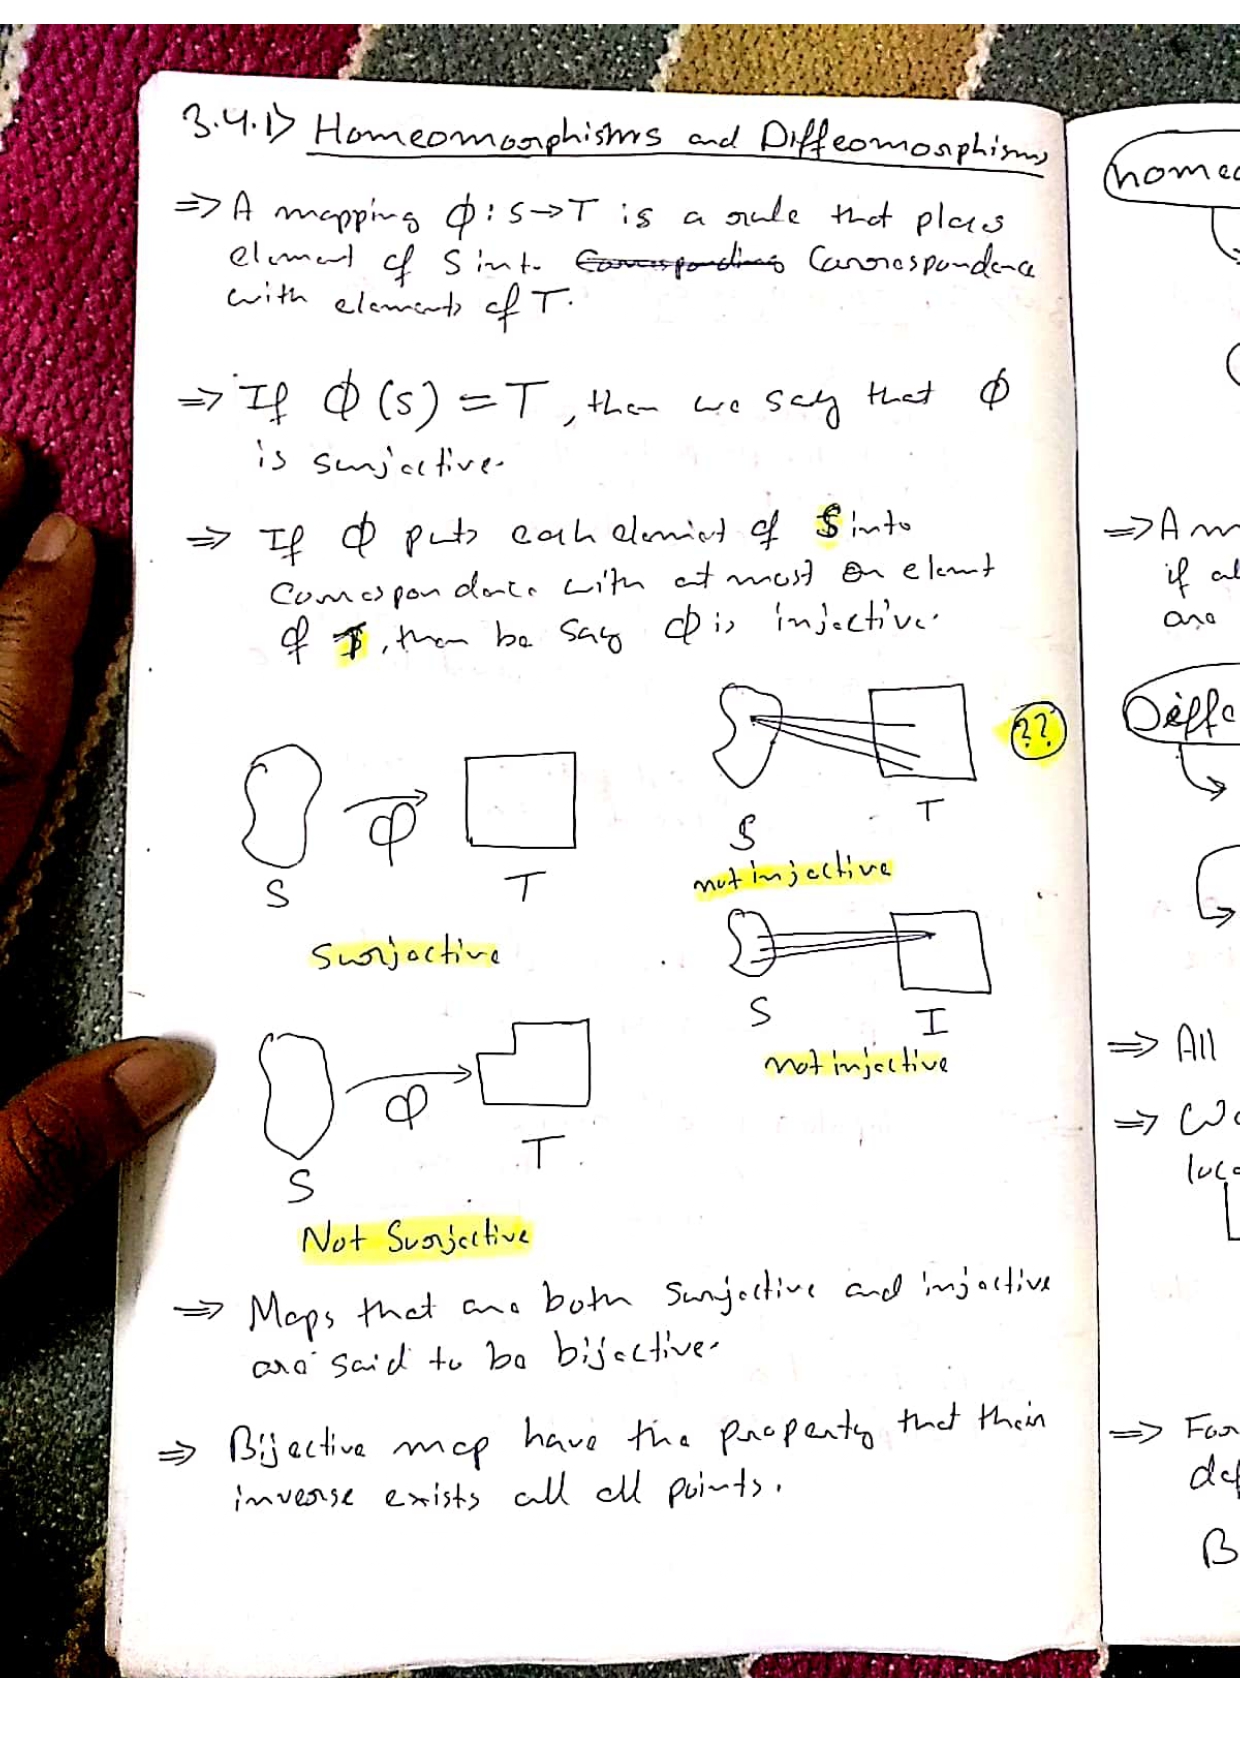 3.4.1> Homeomorphisms and Diffeomorphisms
=> A mapping Φ: S→T is a rule that places
element of S into Corresponding Correspondence
with elements of T.
=> If Φ(S) = T, then we say that Φ
is surjective.
=> If Φ puts each element of S into
Correspondence with at most on elemt
of T, then be say Φ is injective.
??
S
T
not injective
φ
S
T
Surjective
S
I
not injective
φ
S
T
Not Surjective
=> Maps that are both Surjective and injective
are said to be bijective.
=> Bijective map have the property that their
inverse exists all all points.
=> A m
if al
are
=> All
=> We
loca
=> For
def
B